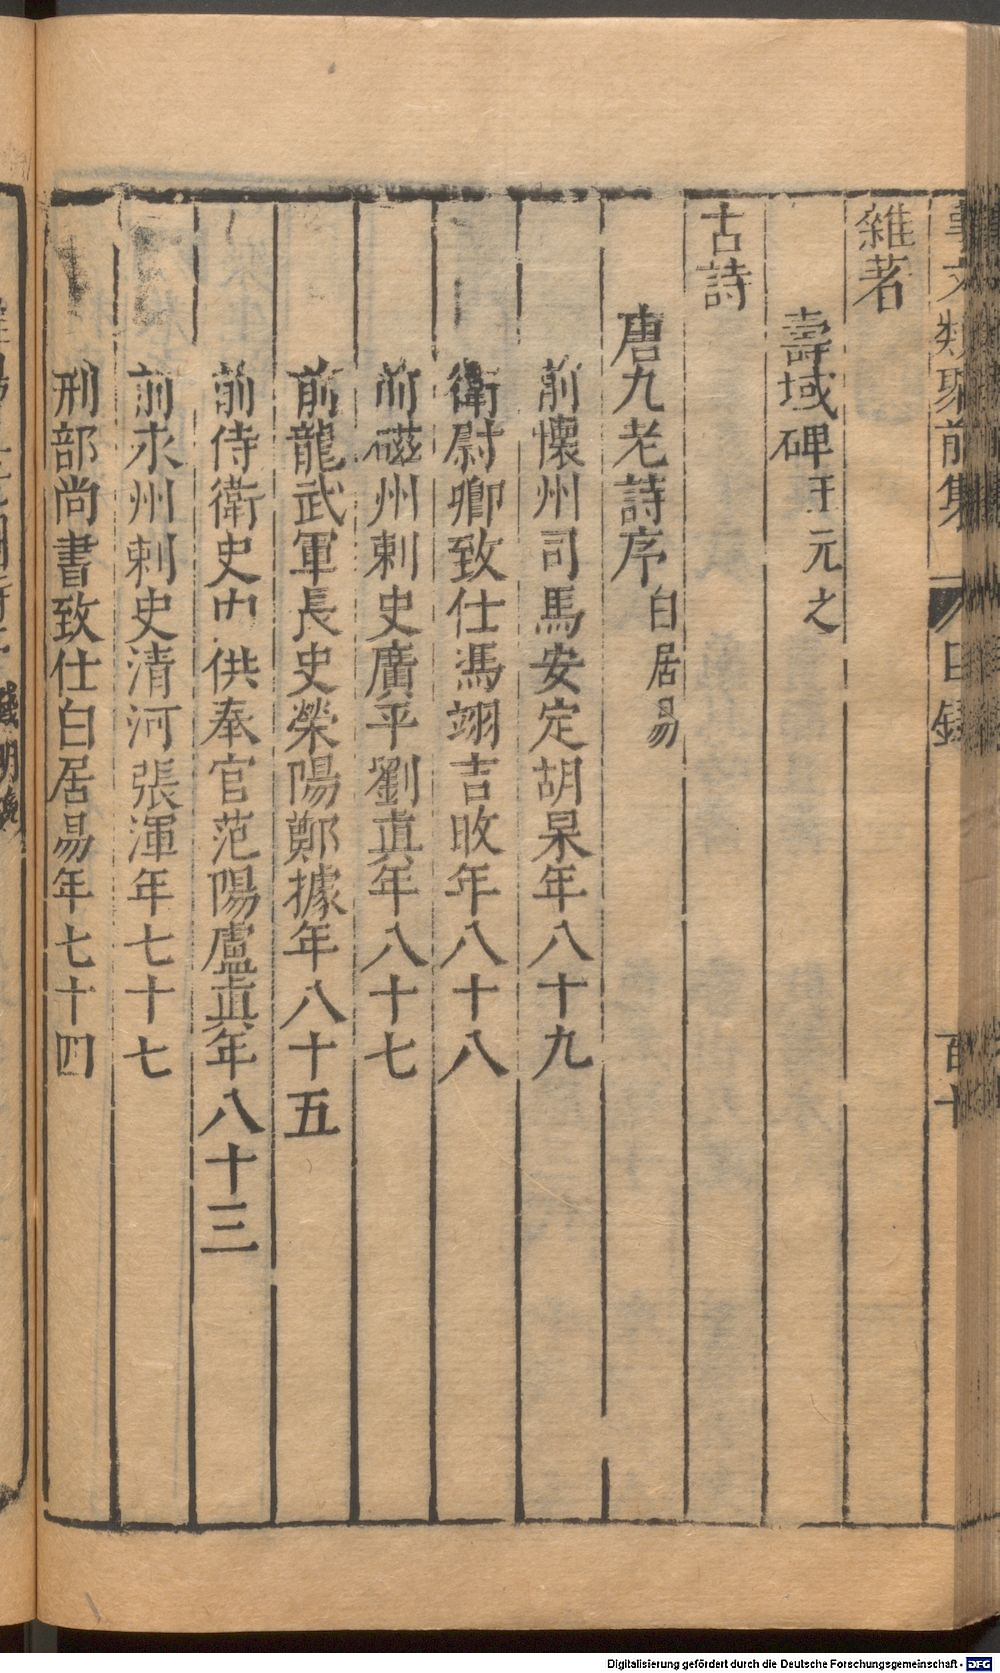 事文類聚前集 目錄 百十
雜著
壽域碑 王元之
古詩
唐九老詩序 白居易
前懷州司馬安定胡杲年八十九
衛尉卿致仕馮翊吉旼年八十八
前磁州刺史廣平劉眞年八十七
前龍武軍長史榮陽鄭據年八十五
前侍衛史內供奉官范陽盧眞年八十三
前永州刺史清河張渾年七十七
刑部尚書致仕白居易年七十四
Digitalisierung gefördert durch die Deutsche Forschungsgemeinschaft - DFG